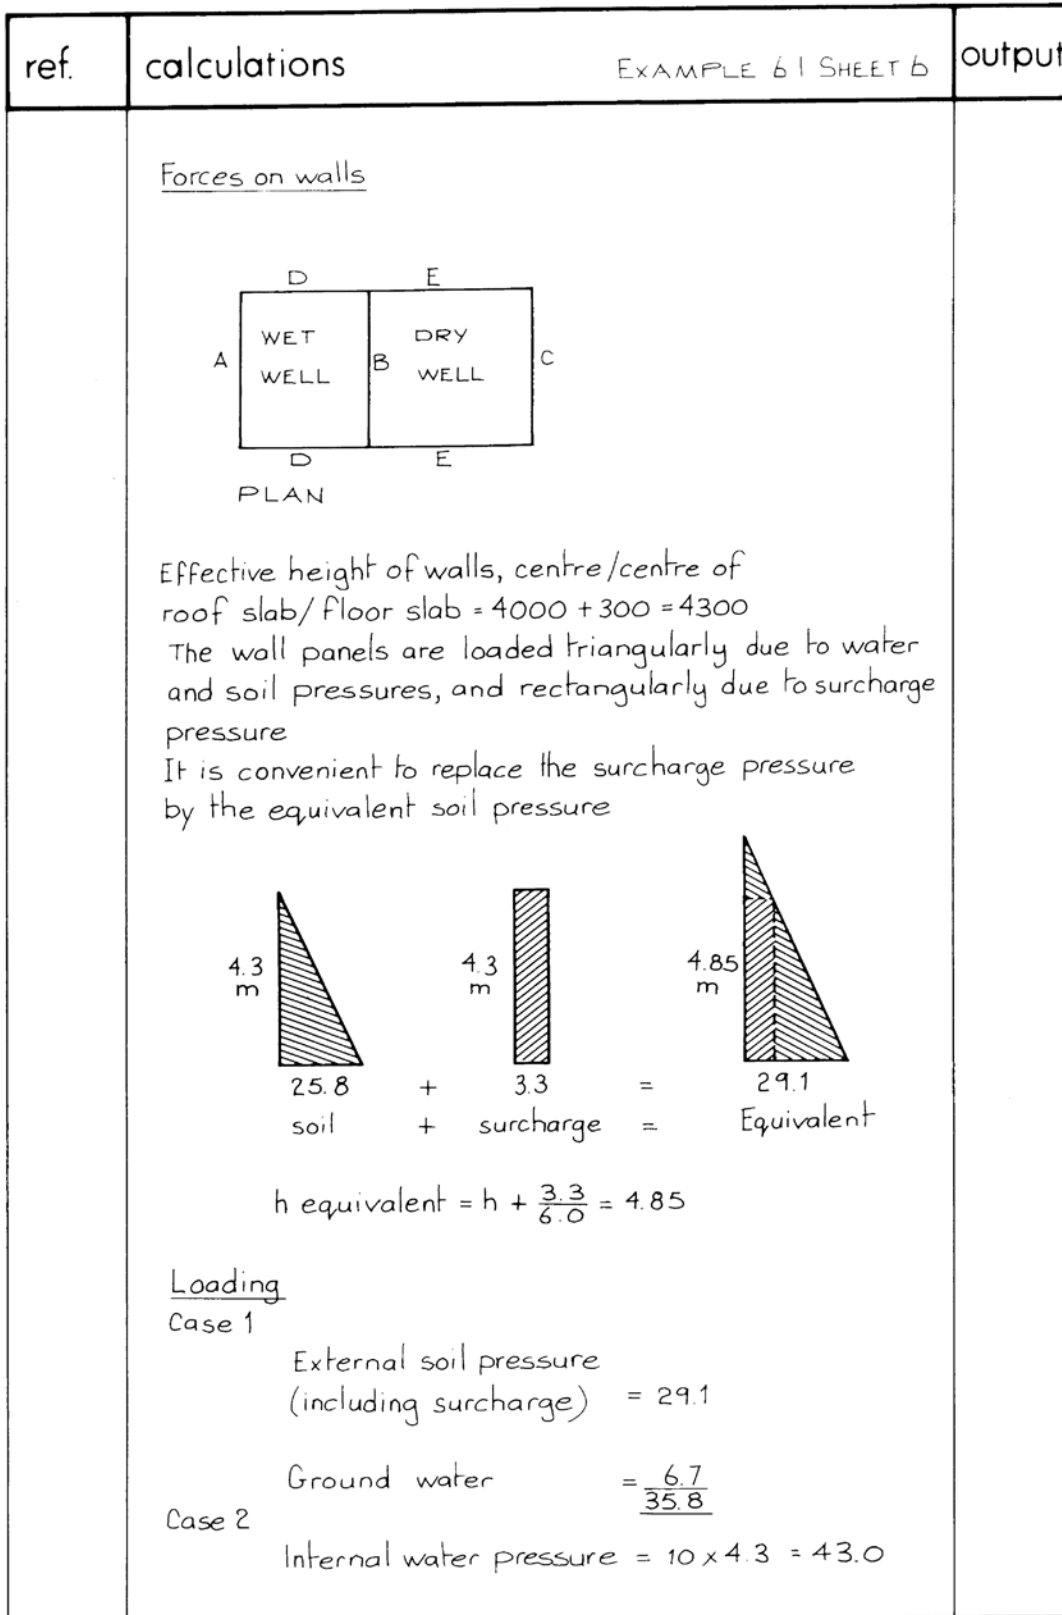 ref.
calculations
EXAMPLE 6 1 SHEET 6
output
Forces on walls
D E
WET DRY
A B C
WELL WELL
D E
PLAN
Effective height of walls, centre/centre of
roof slab/floor slab = 4000 + 300 = 4300
The wall panels are loaded triangularly due to water
and soil pressures, and rectangularly due to surcharge
pressure
It is convenient to replace the surcharge pressure
by the equivalent soil pressure
4.3 4.3 4.85
m m m
25.8 + 3.3 = 29.1
soil + surcharge = Equivalent
h equivalent = h + 3.3/6.0 = 4.85
Loading
Case 1
External soil pressure
(including surcharge) = 29.1
Ground water = 6.7
35.8
Case 2
Internal water pressure = 10 x 4.3 = 43.0